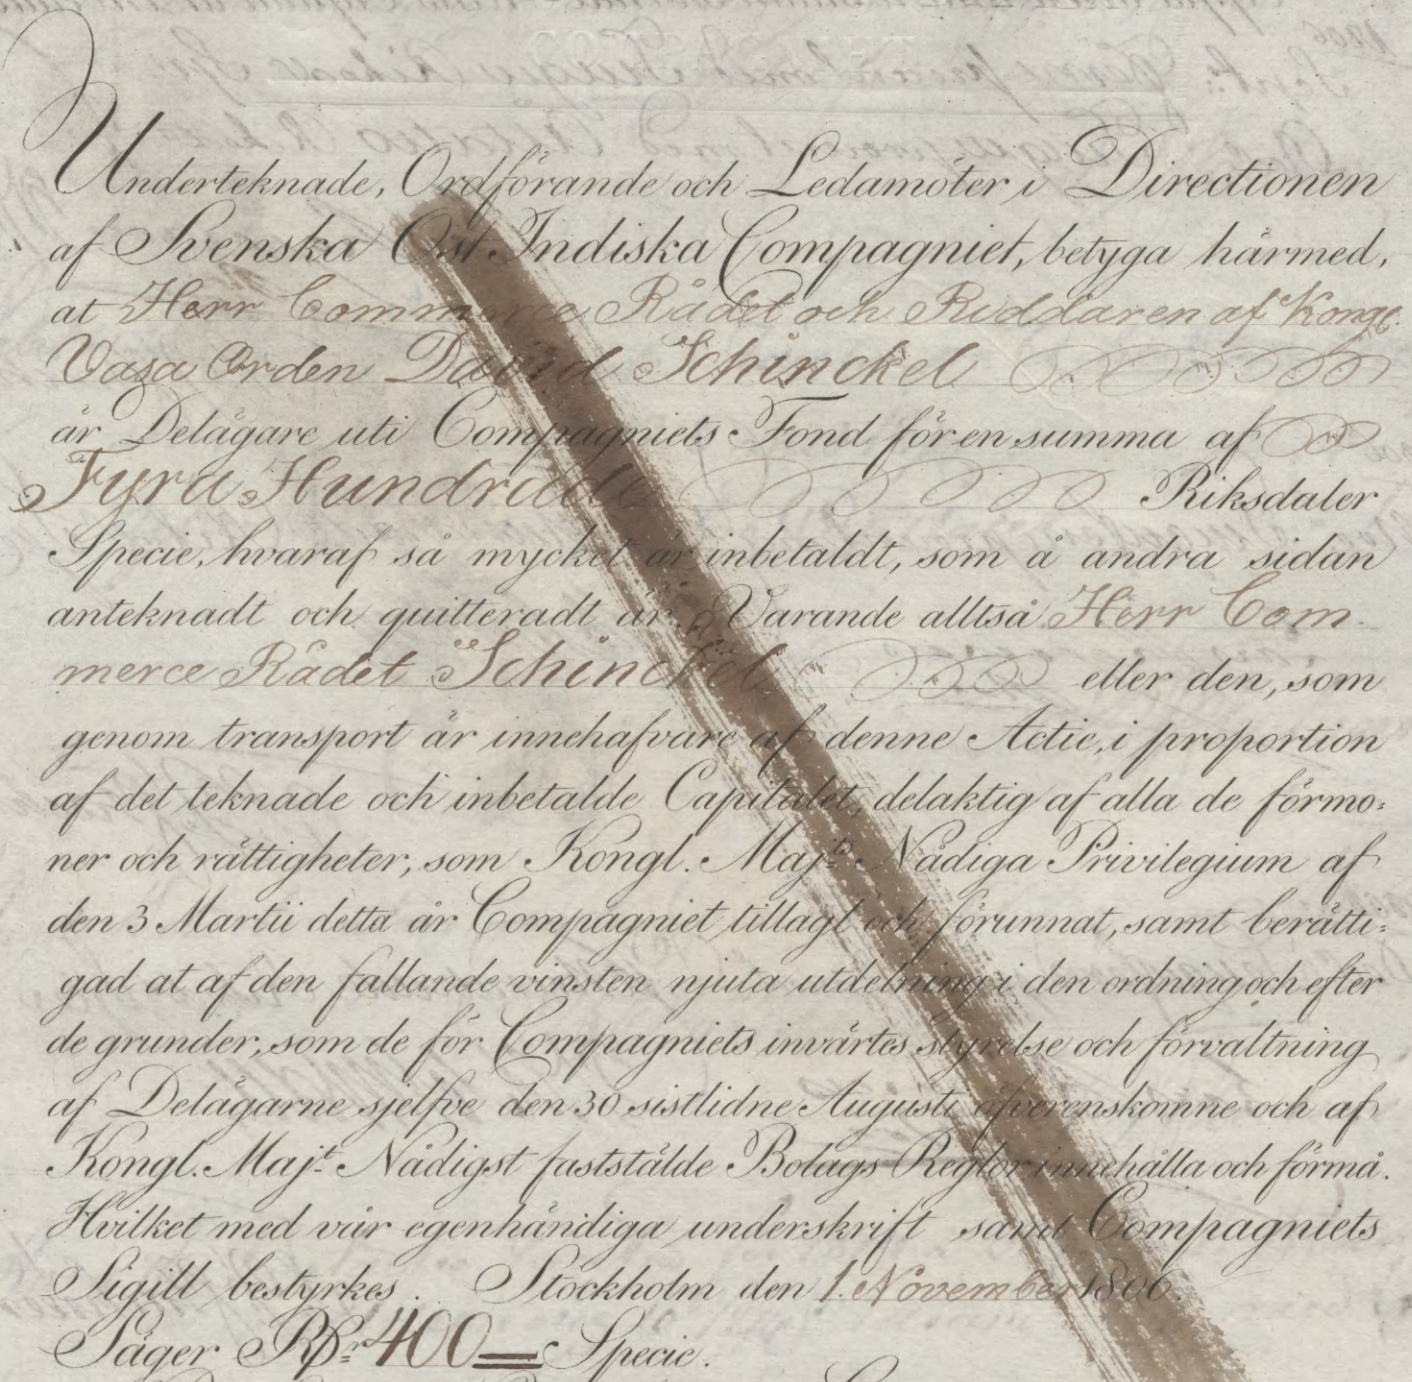 Underteknade, Ordförande och Ledamöter i Directionen
af Svenska Ost Indiska Compagniet, betyga härmed,
at Herr Commerce Rådet och Riddaren af Kongl.
Vasa Orden David Schinckel
är Delägare uti Compagniets Fond för en summa af
Fyra Hundrade Riksdaler
Specie, hvaraf så mycket är inbetaldt, som å andra sidan
anteknadt och quitteradt är. Varande alltså Herr Com
merce Rådet Schinckel eller den, som
genom transport är innehafvare af denne Actie, i proportion
af det teknade och inbetalde Capitalet, delaktig af alla de förmo:
ner och rättigheter, som Kongl. Majts Nådiga Privilegium af
den 3 Martii detta år Compagniet tillagt och förunnat, samt berätti:
gad at af den fallande vinsten njuta utdelning i den ordning och efter
de grunder, som de för Compagniets invärtes styrelse och förvaltning
af Delägarne sjelfve den 30 sistlidne Augusti öfverenskomne och af
Kongl. Majt Nådigst faststälde Bolags Reglor innehålla och förmå.
Hvilket med vår egenhändiga underskrift samt Compagniets
Sigill bestyrkes. Stockholm den 1. November 1806.
Säger Rdr 400 Specie.